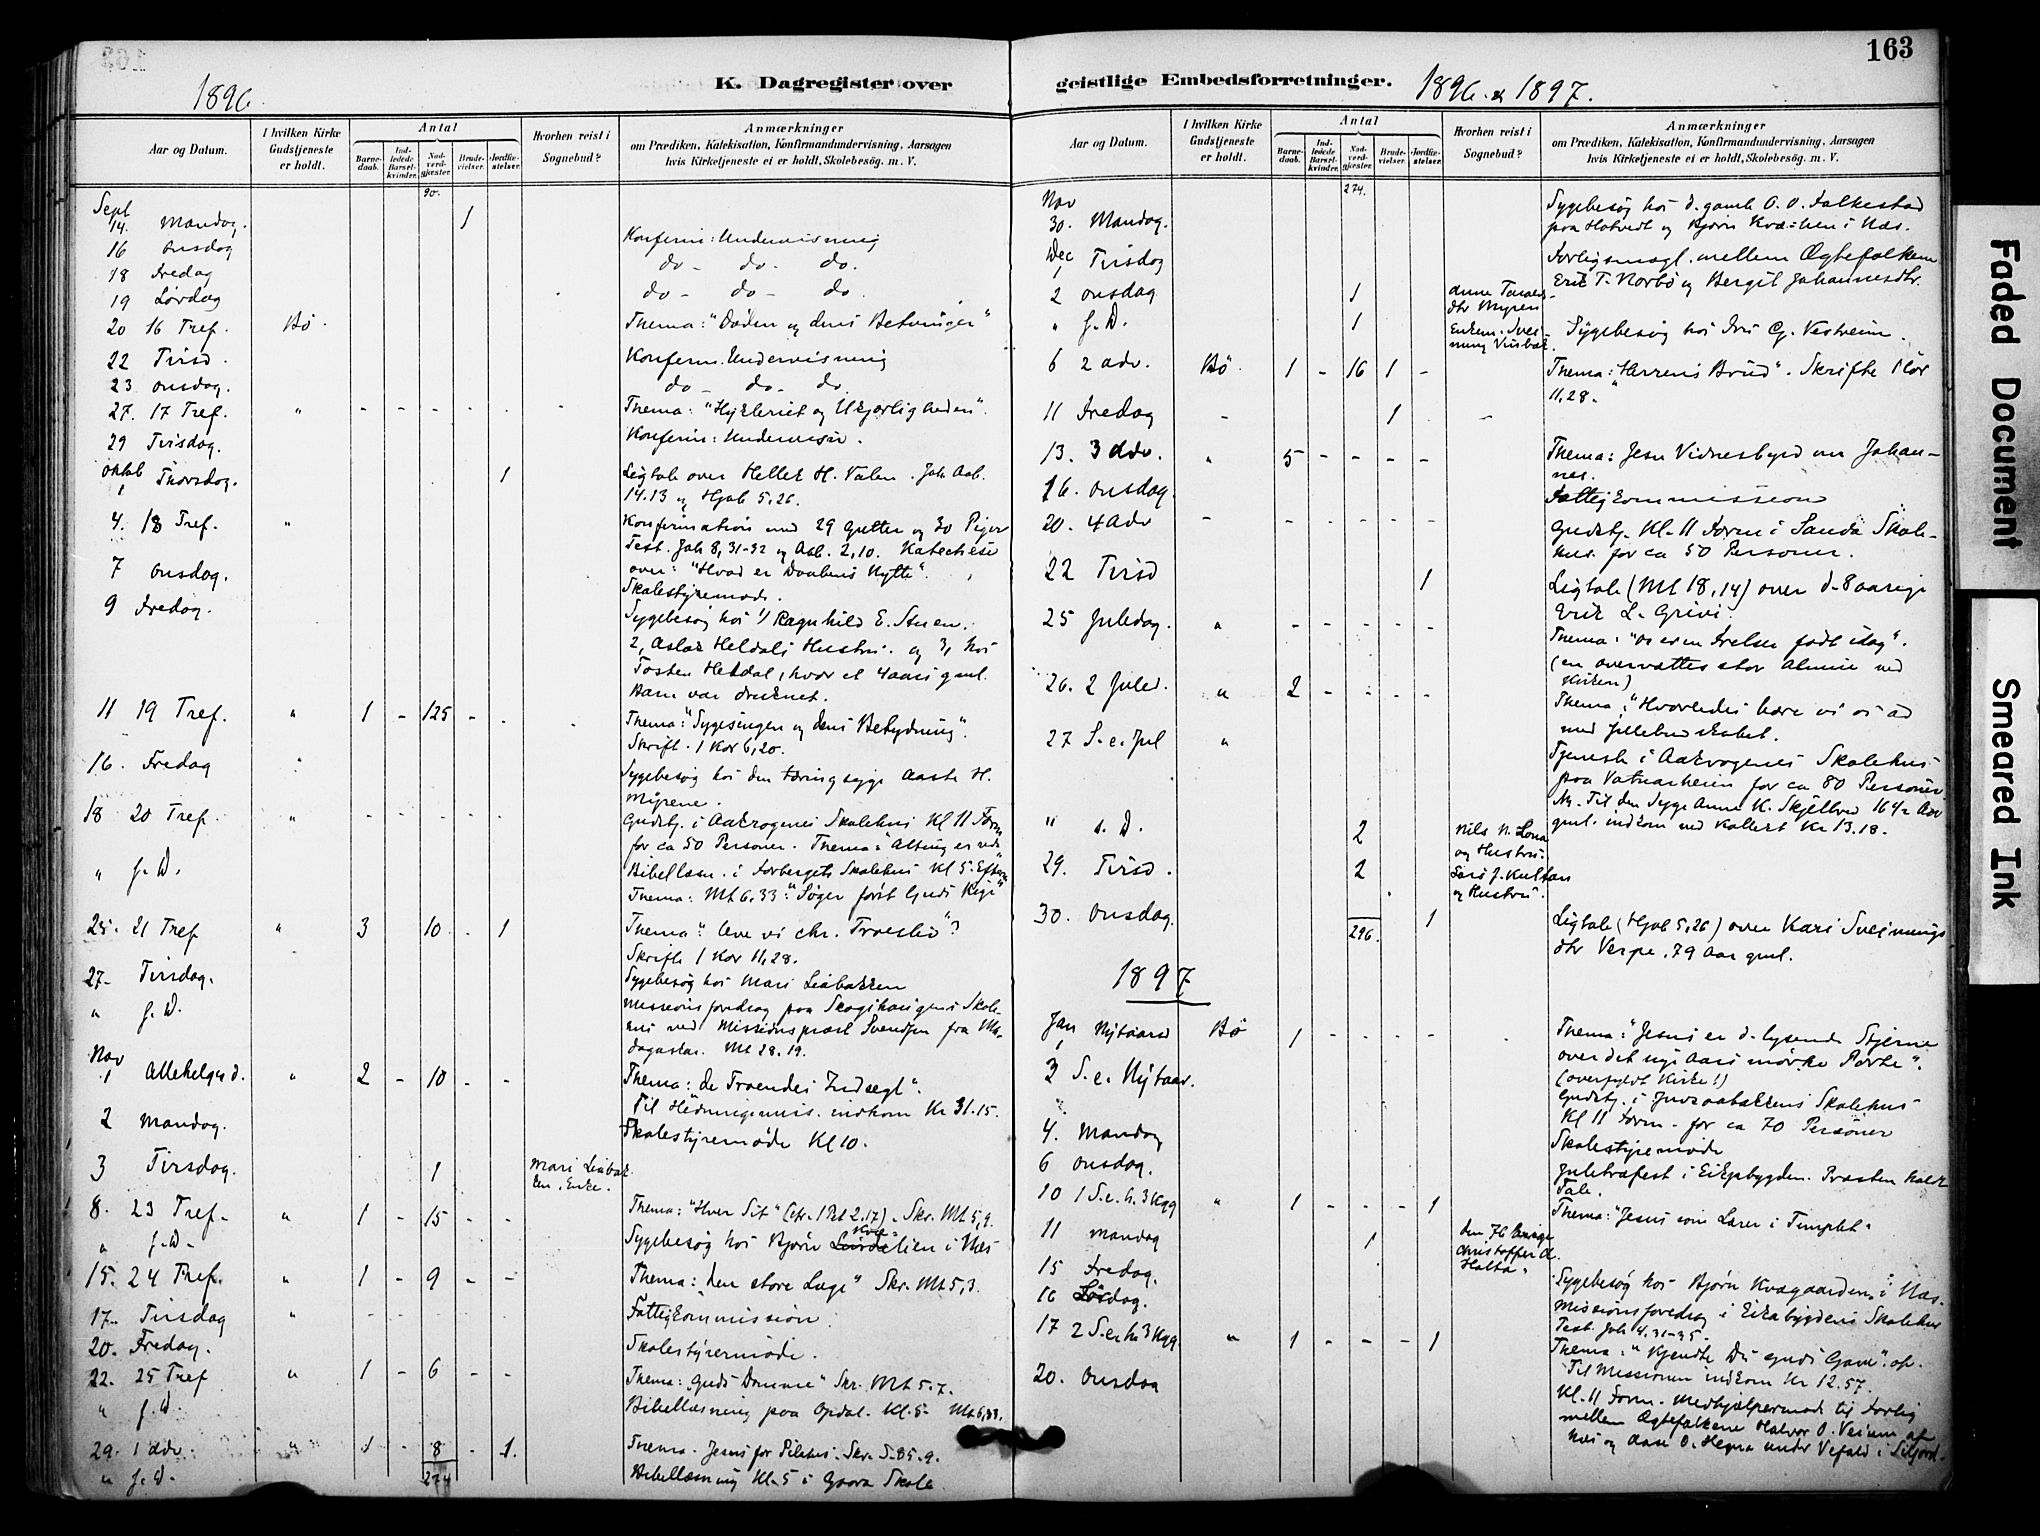 163
K. Dagregister over
geistlige Embedsforretninger.
1896.
1896. & 1897.
Aar og Datum.
I hvilken Kirke Gudstjeneste er holdt.
Antal
Barnedaab.
Indledede Barselkvinder.
Nadverdgjester.
Brudevielser.
Jordfæstelser.
Hvorhen reist i Sognebud?
Anmærkninger
om Prædiken, Katekisation, Konfirmandundervisning, Aarsagen
hvis Kirketjeneste ei er holdt, Skolebesög. m. V.
90.
Sept
14. Mandag. 1
16 Onsdag Konfirm: Undervisning
18 Fredag do - do - do.
19 Lørdag do - do - do.
20 16 Tref. Bø. Thema: "Døden og dens Betvinger"
22 Tirsd. Konfirm. Undervisning
23 Onsdag. do - do - do
27. 17 Tref. " - - - - - Thema: "Hykleriet og Ukjærligheden".
29 Tirsdag. Konfirm: Undervisn.
Oktob
1 Thorsdag. 1 Ligtale over Hellek H. Valen. Joh. Aab.
14.13 og Hjob 5,26.
4. 18 Tref. " Konfirmation med 29 Gutter og 30 Piger
Text. Joh 8,31-32 og Aab. 2,10. Katechese
over: "Hvad er Daabens Nytte".
7 Onsdag. Skolestyremøde.
9 Fredag. Sygebesøg hos 1) Ragnhild E. Stuen.
2, Aslak Heldals Hustru. og 3, hos
Tosten Heldal, hvor et 4 aars gml.
Barn var druknet.
11 19 Tref. " 1 - 125 - - Thema: "Sygesengen og dens Betydning".
Skrift. 1 Kor 6,20.
16. Fredag Sygebesøg hos den tæringsyge Aaste H.
Myrene.
18 20 Tref. " - - - - - Gudstj. i Aakrogenes Skolehus Kl 11 Form
for ca 50 Personer. Thema: Alting er rede
" s. D. Bibellæsn. i Forbergets Skolehus Kl 5 Efterm
Thema: Mt 6.33: "Søger først Guds Rige"
25. 21 Tref " 3 10 - 1 Thema: "Leve vi chr. Troesliv"?
Skrifte 1 Kor 11,28.
27. Tirsdag. Sygebesøg hos Mari Liabakken
" s. D. Missionsforedrag paa Skogshaugens Skole-
hus ved Missionsprest Svendsen fra Ma-
dagaskar. Mt 28.19.
Nov
1 Allehelgnd. " 2 - 10 - - Thema: "De Troendes Indsegl".
Til Hedningemis. indkom Kr 31.15.
2 Mandag. Skolestyremøde Kl 10.
3 Tirsdag. 1 Mari Liabak-
ken, Enke.
8. 23 Tref. " 1 - 15 - - Thema: "Hver Sit" (cfr. 1 Pet 2.17). Skr. Mt 5,9.
" s. D. Sygebesøg hos Bjørn lien i Næs
15. 24 Tref. " 1 - 9 - - Thema: "Den store Læge" Skr. Mt 5,3.
17. Tirsdag " Fattigkommission.
20. Fredag. Skolestyremøde.
22. 25 Tref " 1 - 6 - - Thema: "Guds Domme" Skr. Mt 5.7.
" s. D. Bibellæsning paa Opdal. Kl. 5. Mt 6,33.
29. 1 Adv. " 1 - 8 - 1. Thema. Jesus for Pilatus. Skr.
274
" s. D. Bibellæsning Kl. 5 i Gaara Skole
274.
Nov
30. Mandag. Sygebesøg hos d. gamle O. O. Falkestad
paa Hotvedt og Bjørn i Næs.
Dec
1 Tirsdag Forligsmægl. mellem Ægtefolkene
Erik T. Norbø og Bergit Johannesdtr.
2 Onsdag 1 Anne Taralds-
dtr Myren
" s. D. 1 Enkem. Svei-
nung Sygebesøg hos Iver Vestreim.
6 2 Adv. Bø. 1 - 16 1 - Thema: "Herrens Brud". Skrifte 1 Cor
11,28.
11 Fredag - 1 -
13. 3 Adv. " 5 - - - - Thema: Jesu Vidnesbyrd om Johan-
nes.
16. Onsdag Fattigkommission
20. 4 Adv - - - - - - Gudstj. Kl. 11 Form i Sanda Skole-
hus for ca 50 Personer.
22 Tirsd 1 Ligtale (Mt 18,14) over d. 8 aarige
Erik L. Grivi.
25 Juledag. " - - - - - Thema: "Os er en Frelser født idag".
(en overvættes stor Almue ved
Kirken)
26. 2 Juled. " 2 - - - - Thema: "Hvorledes bære vi os ad
med Julebudskabet.
27 S. e. Jul " Tjeneste i Aakrogenes Skolehus
paa Vatnarheim for ca 80 Personer
Nb. Til den syge Anne K. Skjelbred 16½ Aar
gml. indkom ved Kollekt Kr 13.18.
" s. D. 2 Nils N. Lona
og Hustru.
29. Tirsd. 2
og Hustru.
30. Onsdag. 1 Ligtale (Hjob 5,26) over Kari Sveinungs
dtr Verpe, 79 Aar gml.
296.
1897
Jan
1 Nytaarsd Bø 1 - - - - Thema: "Jesus er d. lysende Stjerne
over det nye Aars mørke Porte".
(overfyldt Kirke!)
3 S. e. Nytaar. Gudstj. i Skolehus
Kl 11 Form. for ca 70 Personer
4. Mandag Skolestyremøde
6 Onsdag. Juletræfest i Eikjabygden. Præsten holdt
Tale.
10 1 S. e. h. 3 Kgg " 1 - - - 1 Thema: "Jesus som Lærer i Templet"
11 Mandag 1 den 76 Aarige
Christoffer A.
Holta.
15 Fredag. Sygebesøg hos Bjørn Kvægaarden i Næs.
16 Lørdag. Missionsforedrag i Eikabygdens Skolehus
Text. Joh 4.31-35.
17 2 S. e. h. 3 Kgg. " 1 - - - 1 Thema: "Kjendte Du Guds Gave". of.
Til Missionen indkom Kr 12.57.
20. Onsdag Kl. 11 Form. Medhjælpermøde til Forlig
mellem Ægtefolkene Halvor O. Veium af
Næs og Aase O. Hegna under Vefald i Siljord.
Faded Document
Smeared Ink